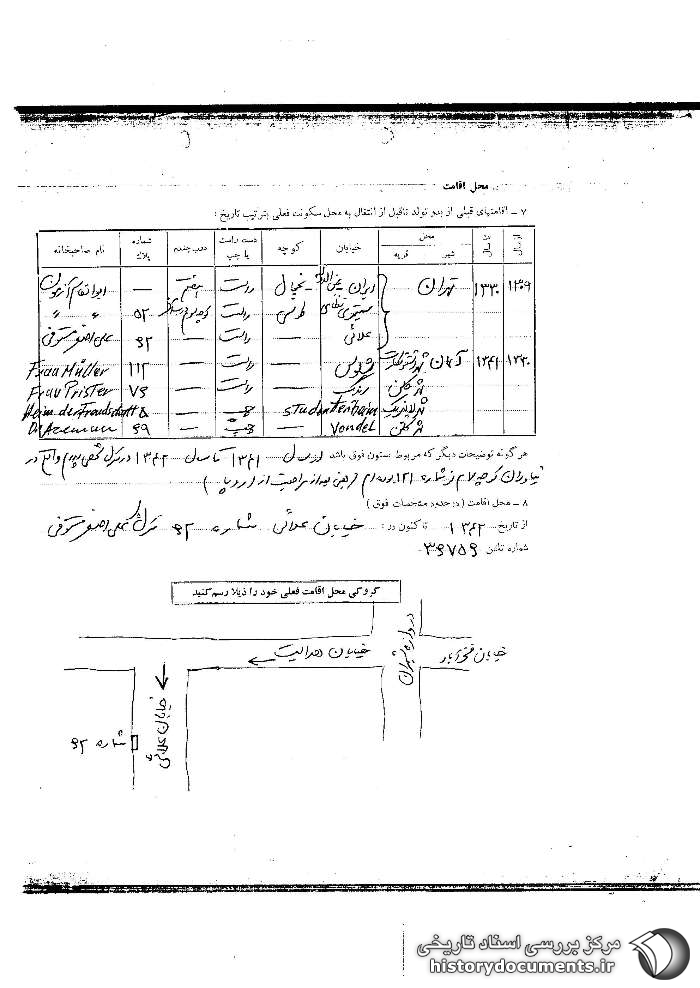 محل اقامت
۷ ـ اقامتهای قبلی از بدو تولد تاقبل از انتقال به محل سکونت فعلی بترتیب تاریخ :
از سال تا سال محل شهر قریه خیابان کوچه دست راست یا چپ درب چندم شماره پلاك نام صاحبخانه
۱۳۰۹ ۱۳۳۰ تهران ایران یخچال راست —
راست ۵۲ " "
علائی — — — ۹۲ علی اصغر مستوفی
۱۳۳۰ ۱۳۴۱ آلمان — راست — ۱۱۲ Frau Müller
— راست — ۷۹ Frau Prister
Studentenheim — چپ — ۵ Heim der Fraudstatt
Vondel — چپ — ۹۹
هر گونه توضیحات دیگر که مربوط بستون فوق باشد از سال ۱۳۴۱ تا سال ۱۳۴۲ در منزل شخصی پدرم واقع در
نیاوران کوچه شماره ۱۲۱ بوده ام ( یعنی بعد از مراجعت از اروپا )
۸ ـ محل اقامت ( در حدود مشخصات فوق )
از تاریخ ۱۳۴۲ تا کنون در : خیابان علائی شماره ۹۲ منزل علی اصغر مستوفی
شماره تلفن ۳۹۷۵۹
کروکی محل اقامت فعلی خود را ذیلا رسم کنید
دروازه شمیران
خیابان فخرآباد
خیابان هدایت
خیابان علائی
شماره ۹۲
مرکز بررسی اسناد تاریخی
historydocuments.ir